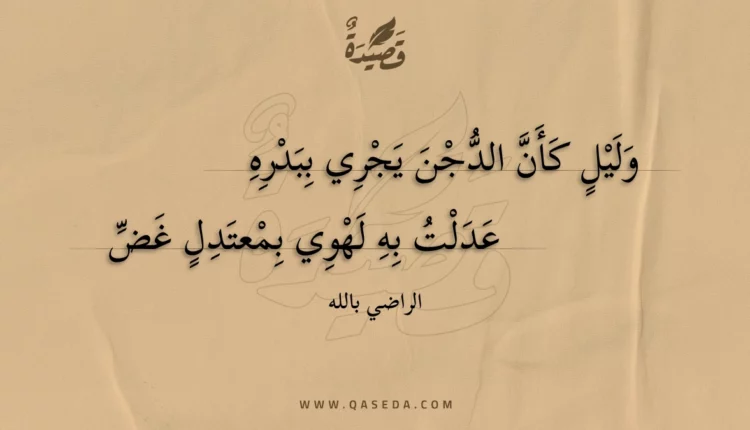 قَصِيْدَةٌ
وَلَيْلٍ كَأَنَّ الدُّجْنَ يَجْرِي بِبَدْرِهِ
عَدَلْتُ بِهِ لَهْوِي بِمْعتَدِلٍ غَضِّ
الراضي بالله
WWW.QASEDA.COM